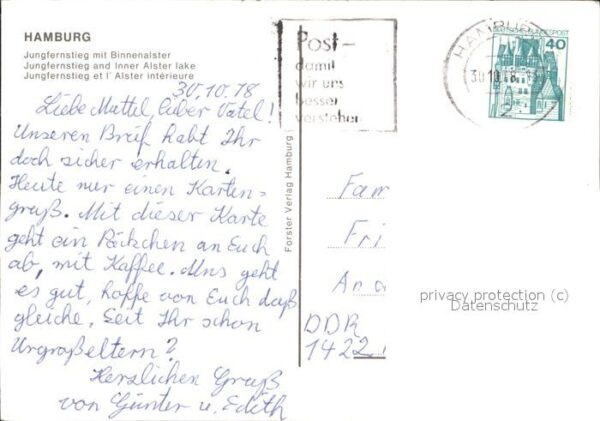 HAMBURG
Jungfernstieg mit Binnenalster
Jungfernstieg and Inner Alster lake
Jungfernstieg et l' Alster intérieure
30.10.78
Liebe Muttel, lieber Vatel!
Unseren Brief habt Ihr
doch sicher erhalten.
Heute nur einen Karten=
gruß. Mit dieser Karte
geht ein Päckchen an Euch
ab, mit Kaffee. Uns geht
es gut, hoffe von Euch daß
gleiche. Seit Ihr schon
Urgroßeltern?
Herzlichen Gruß
von Günter u. Edith
Forster Verlag Hamburg
Post-
damit
wir uns
besser
verstehen
HAMBURG
30.10.78
2
DEUTSCHE BUNDESPOST
40
Fam
Fri
An d
privacy protection (c)
Datenschutz
DDR
1422